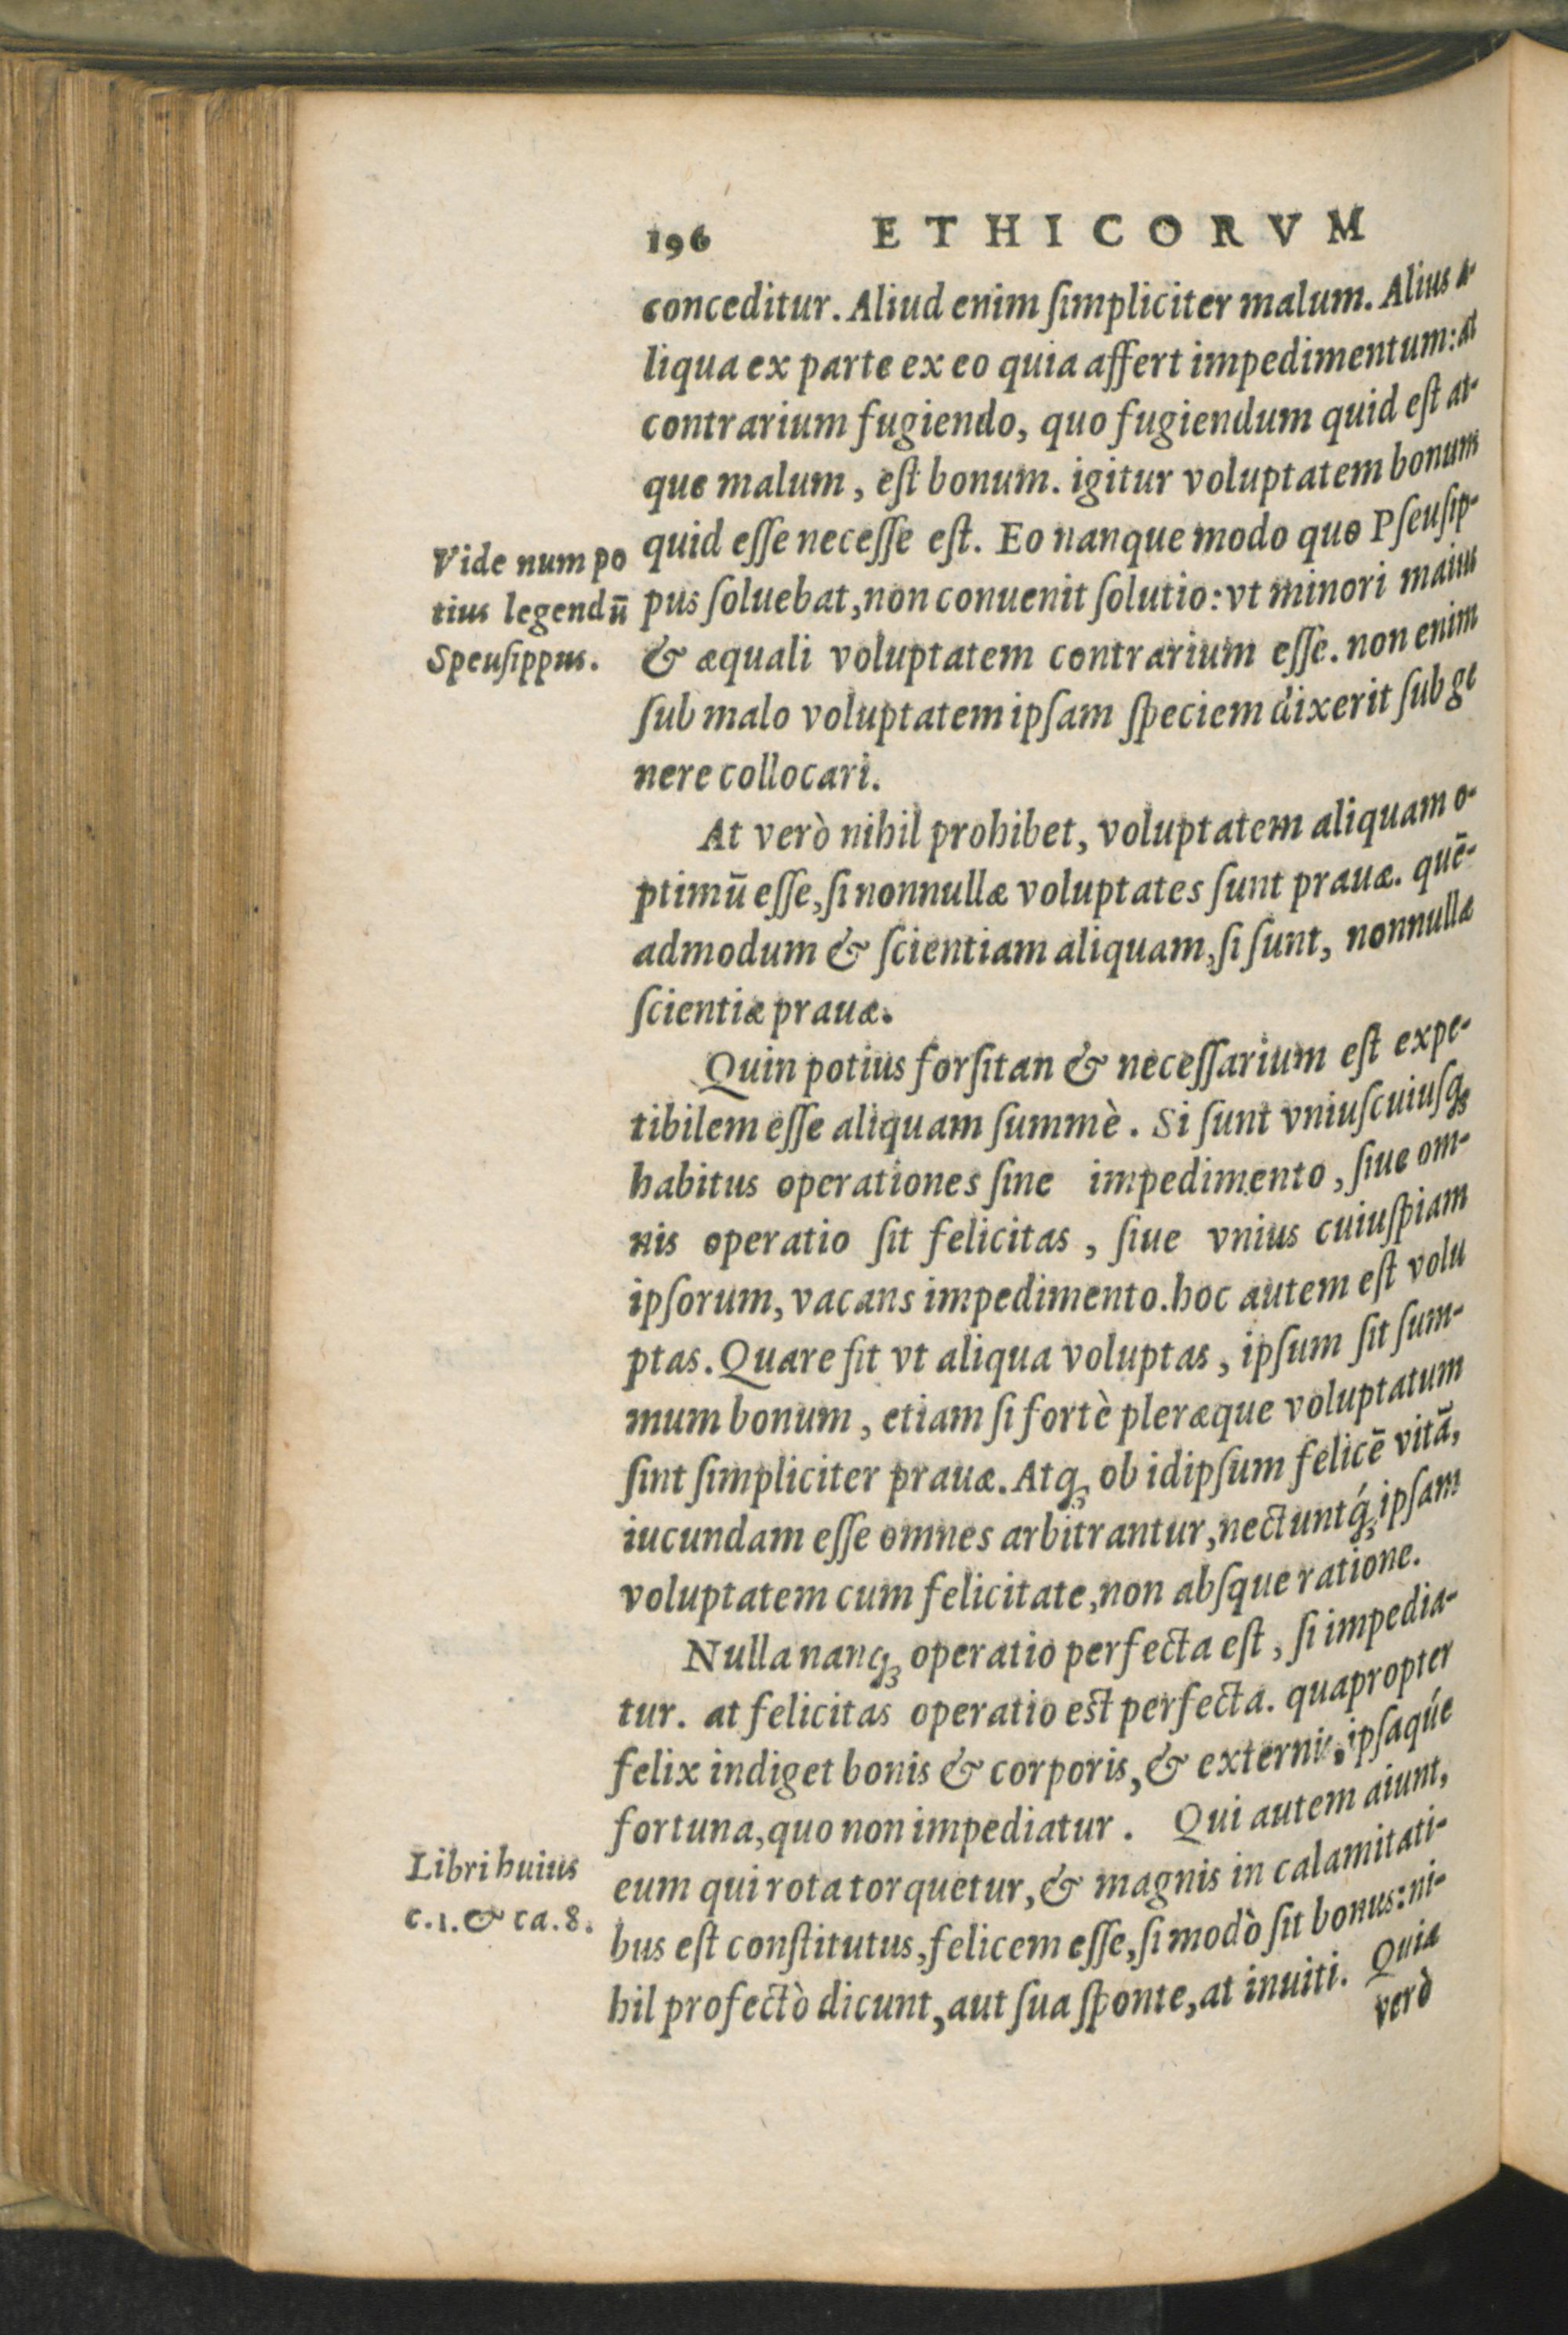 196 ETHICORVM
conceditur. Aliud enim ſimpliciter malum. Alius a-
liqua ex parte ex eo quia affert impedimentum: at
contrarium fugiendo, quo fugiendum quid eſt at-
que malum, eſt bonum. igitur voluptatem bonum
quid eſſe neceſſe eſt. Eo nanque modo quo Pſeuſip-
pus ſoluebat, non conuenit ſolutio: vt minori maius
& æquali voluptatem contrarium eſſe. non enim
ſub malo voluptatem ipſam ſpeciem dixerit ſub ge
nere collocari.
Vide num po
tius legendū
Speuſippus.
At verò nihil prohibet, voluptatem aliquam o-
ptimū eſſe, ſi nonnullæ voluptates ſunt prauæ. quē-
admodum & ſcientiam aliquam, ſi ſunt, nonnullæ
ſcientiæ prauæ.
Quin potius forſitan & neceſſarium eſt expe-
tibilem eſſe aliquam ſummè. Si ſunt vniuſcuiuſq;
habitus operationes ſine impedimento, ſiue om-
nis operatio ſit felicitas, ſiue vnius cuiuſpiam
ipſorum, vacans impedimento. hoc autem eſt volu
ptas. Quare fit vt aliqua voluptas, ipſum ſit ſum-
mum bonum, etiam ſi fortè pleræque voluptatum
ſint ſimpliciter prauæ. Atq; ob idipſum felicē vitā,
iucundam eſſe omnes arbitrantur, nectuntq́; ipſam
voluptatem cum felicitate, non abſque ratione.
Nulla nanq; operatio perfecta eſt, ſi impedia-
tur. at felicitas operatio est perfecta. quapropter
felix indiget bonis & corporis, & externis, ipſaq́ue
fortuna, quo non impediatur. Qui autem aiunt,
eum qui rota torquetur, & magnis in calamitati-
bus eſt conſtitutus, felicem eſſe, ſi modò ſit bonus: ni-
hil profectò dicunt, aut ſua ſponte, at inuiti. Quia
Libri huius
c.1. & ca.8.
verò